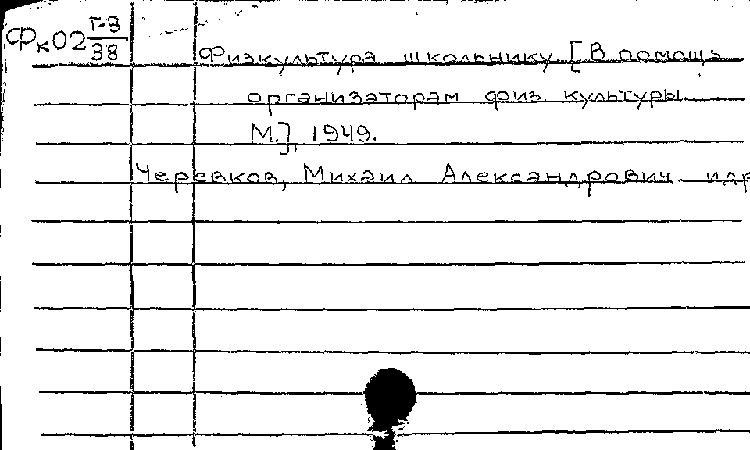 Фк02 Г-3/38
Физкультура школьнику [В помощь
организаторам физ. культуры.
М.], 1949.
Черевков, Михаил Александрович и др